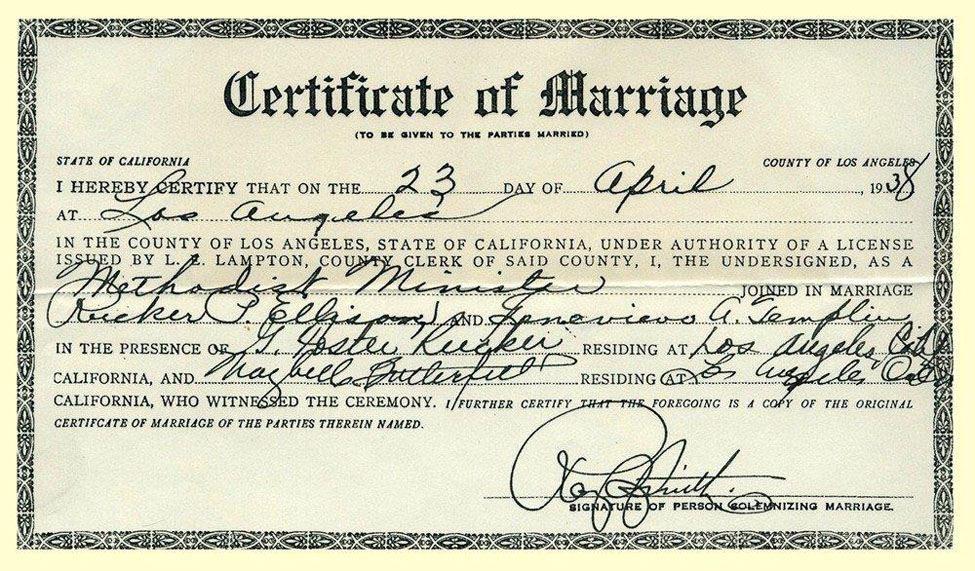 Certificate of Marriage
(TO BE GIVEN TO THE PARTIES MARRIED)
STATE OF CALIFORNIA COUNTY OF LOS ANGELES
I HEREBY CERTIFY THAT ON THE 23 DAY OF April, 1938
AT Los Angeles
IN THE COUNTY OF LOS ANGELES, STATE OF CALIFORNIA, UNDER AUTHORITY OF A LICENSE
ISSUED BY L. E. LAMPTON, COUNTY CLERK OF SAID COUNTY, I, THE UNDERSIGNED, AS A
Methodist Minister JOINED IN MARRIAGE
Rucker T. Ellison AND Genevieve A. Templin
IN THE PRESENCE OF Rucker RESIDING AT Los Angeles City
CALIFORNIA, AND RESIDING AT Los Angeles
CALIFORNIA, WHO WITNESSED THE CEREMONY. I FURTHER CERTIFY THAT THE FOREGOING IS A COPY OF THE ORIGINAL
CERTIFCATE OF MARRIAGE OF THE PARTIES THEREIN NAMED.
Smith
SIGNATURE OF PERSON SOLEMNIZING MARRIAGE.